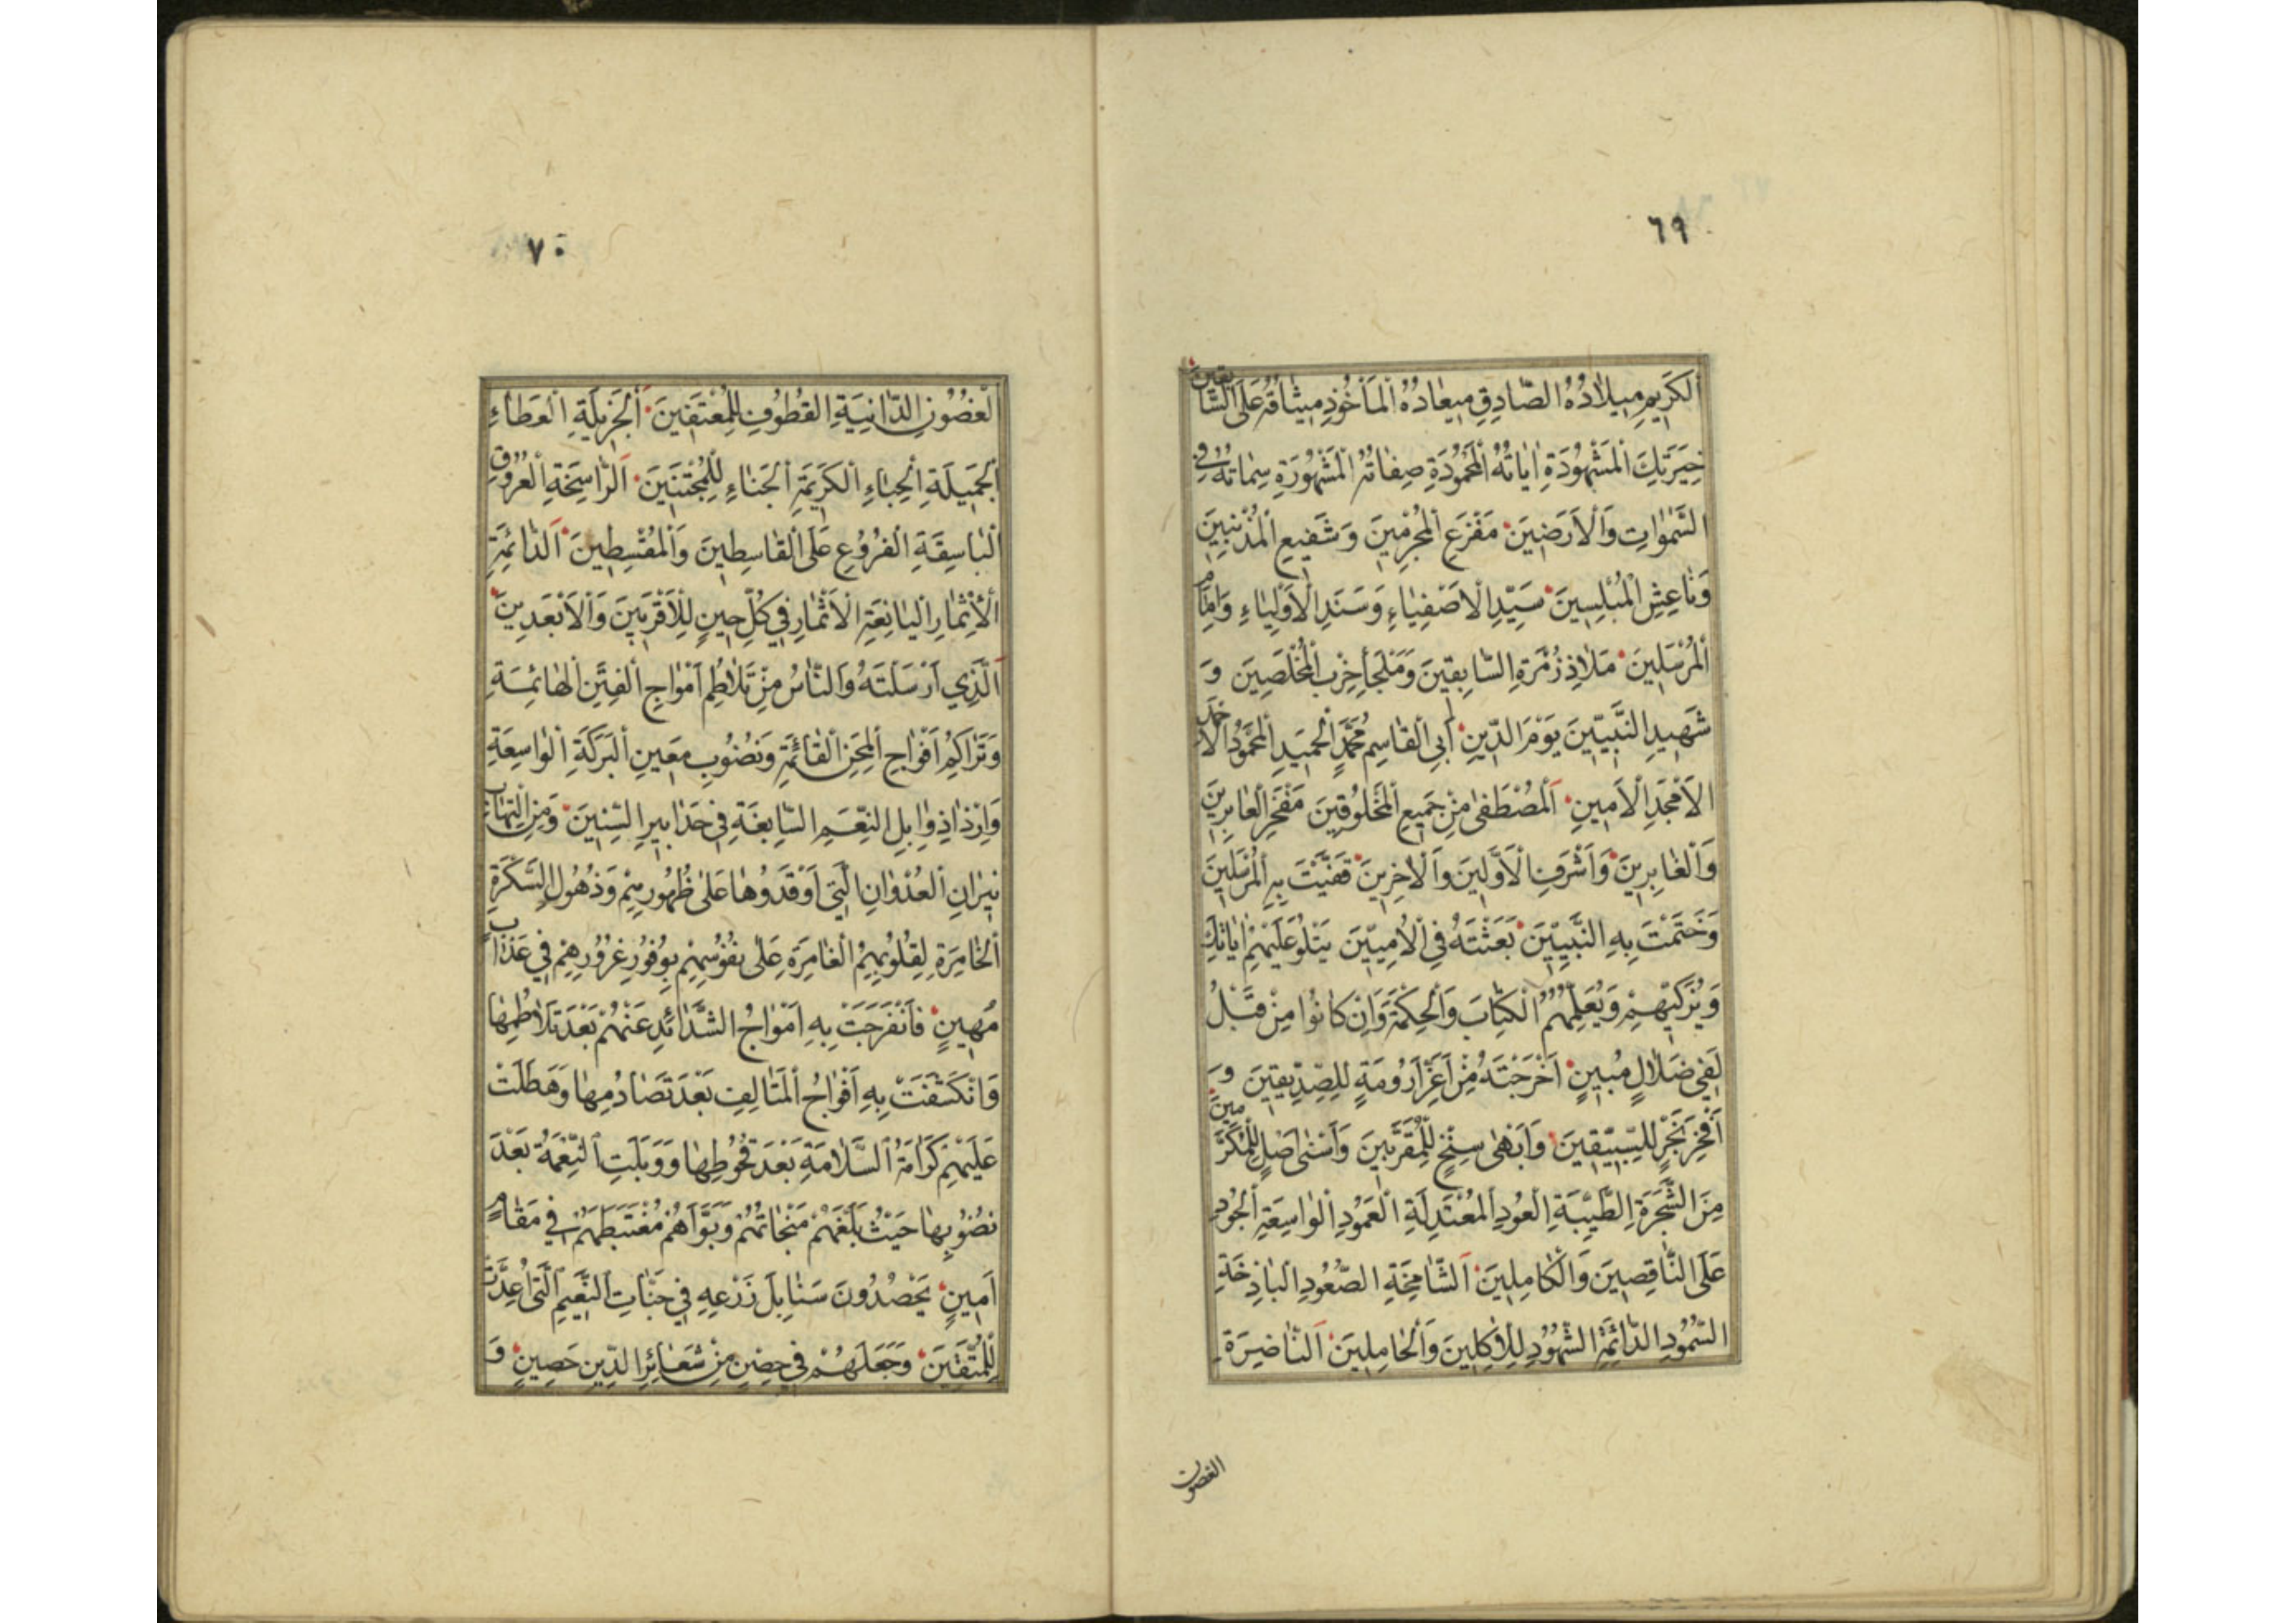 ٦٩
اَلْكَرِيمِ مِيلَادُهُ الصَّادِقِ مِيعَادُهُ الْمَأْخُوذِ مِيثَاقُهُ عَلَى السَّابِقِينَ
خِيَرَتِكَ الْمَشْهُودَةِ اٰيَاتُهُ الْمَحْمُودَةِ صِفَاتُهُ الْمَشْهُورَةِ سِمَاتُهُ فِي
السَّمٰوَاتِ وَالْاَرَضِينَ مَفْزَعِ الْمُجْرِمِينَ وَشَفِيعِ الْمُذْنِبِينَ
وَنَاعِشِ الْمُبْلِسِينَ سَيِّدِ الْاَصْفِيَاءِ وَسَنَدِ الْاَوْلِيَاءِ وَاِمَامِ
الْمُرْسَلِينَ مَلَاذِ زُمْرَةِ السَّابِقِينَ وَمَلْجَأِ حِزْبِ الْمُخْلَصِينَ وَ
شَهِيدِ النَّبِيِّينَ يَوْمَ الدِّينِ اَبِي الْقَاسِمِ مُحَمَّدٍ الْحَمِيدِ الْمَحْمُودِ الْاَحْمَدِ
الْاَمْجَدِ الْاَمِينِ اَلْمُصْطَفٰى مِنْ جَمِيعِ الْمَخْلُوقِينَ مَفْخَرِ الْعَابِرِينَ
وَالْغَابِرِينَ وَاَشْرَفِ الْاَوَّلِينَ وَالْاٰخِرِينَ قَفَّيْتَ بِهِ الْمُرْسَلِينَ
وَخَتَمْتَ بِهِ النَّبِيِّينَ بَعَثْتَهُ فِي الْاُمِّيِّينَ يَتْلُو عَلَيْهِمْ اٰيَاتِكَ
وَيُزَكِّيهِمْ وَيُعَلِّمُهُمُ الْكِتَابَ وَالْحِكْمَةَ وَاِنْ كَانُوا مِنْ قَبْلُ
لَفِي ضَلَالٍ مُبِينٍ اَخْرَجْتَهُ مِنْ اَعَزِّ اَرُومَةٍ لِلصِّدِّيقِينَ وَ
اَفْخَرِ نَجْرٍ لِلسَّبِّيقِينَ وَاَبْهٰى سِنْخٍ لِلْمُقَرَّبِينَ وَاَسْنٰى اَصْلٍ لِلْمُكَرَّمِينَ
مِنَ الشَّجَرَةِ الطَّيِّبَةِ الْعُودِ الْمُعْتَدِلَةِ الْعَمُودِ الْوَاسِعَةِ الْجُودِ
عَلَى النَّاقِصِينَ وَالْكَامِلِينَ اَلشَّامِخَةِ الصُّعُودِ الْبَاذِخَةِ
السُّمُودِ الدَّائِمَةِ الشُّهُودِ لِلْاٰكِلِينَ وَالْحَامِلِينَ اَلنَّاضِرَةِ
الغصون
٧٠
الْغُصُونِ الدَّانِيَةِ الْقُطُوفِ لِلْمُعْتَفِينَ اَلْجَزِيلَةِ الْعَطَاءِ
الْجَمِيلَةِ الْحِبَاءِ الْكَرِيمَةِ الْجَنَاءِ لِلْمُجْتَنِينَ اَلرَّاسِخَةِ الْعُرُوقِ
الْبَاسِقَةِ الْفُرُوعِ عَلَى الْقَاسِطِينَ وَالْمُقْسِطِينَ اَلدَّائِمَةِ
الْاِثْمَارِ الْيَانِعَةِ الْاَثْمَارِ فِي كُلِّ حِينٍ لِلْاَقْرَبِينَ وَالْاَبْعَدِينَ
اَلَّذِي اَرْسَلْتَهُ وَالنَّاسُ مِنْ تَلَاطُمِ اَمْوَاجِ الْفِتَنِ الْهَائِمَةِ
وَتَرَاكُمِ اَفْوَاجِ الْمِحَنِ الْقَائِمَةِ وَنُضُوبِ مَعِينِ الْبَرَكَةِ الْوَاسِعَةِ
وَارْذَاذِ وَابِلِ النِّعَمِ السَّابِغَةِ فِي حَدَابِيرِ السِّنِينَ وَمِنِ الْتِهَابِ
نِيرَانِ الْعُدْوَانِ الَّتِي اَوْقَدُوهَا عَلٰى ظُهُورِهِمْ وَذُهُولِ السَّكْرَةِ
الْخَامِرَةِ لِقُلُوبِهِمُ الْغَامِرَةِ عَلٰى نُفُوسِهِمْ بِوُفُورِ غُرُورِهِمْ فِي عَذَابٍ
مُهِينٍ فَانْفَرَجَتْ بِهِ اَمْوَاجُ الشَّدَائِدِ عَنْهُمْ بَعْدَ تَلَاطُمِهَا
وَانْكَشَفَتْ بِهِ اَفْوَاجُ الْمَتَالِفِ بَعْدَ تَصَادُمِهَا وَهَطَلَتْ
عَلَيْهِمْ كَرَامَةُ السَّلَامَةِ بَعْدَ قُحُوطِهَا وَوَبَلَتِ النِّعْمَةُ بَعْدَ
نُضُوبِهَا حَيْثُ بَلَّغَهُمْ مَنْجَاتَهُمْ وَبَوَّاَهُمْ مُغْتَبَطَهُمْ فِي مَقَامٍ
اَمِينٍ يَحْصُدُونَ سَنَابِلَ زَرْعِهِ فِي جَنَّاتِ النَّعِيمِ الَّتِي اُعِدَّتْ
لِلْمُتَّقِينَ وَجَعَلَهُمْ فِي حِصْنٍ مِنْ شَعَائِرِ الدِّينِ حَصِينٍ وَ